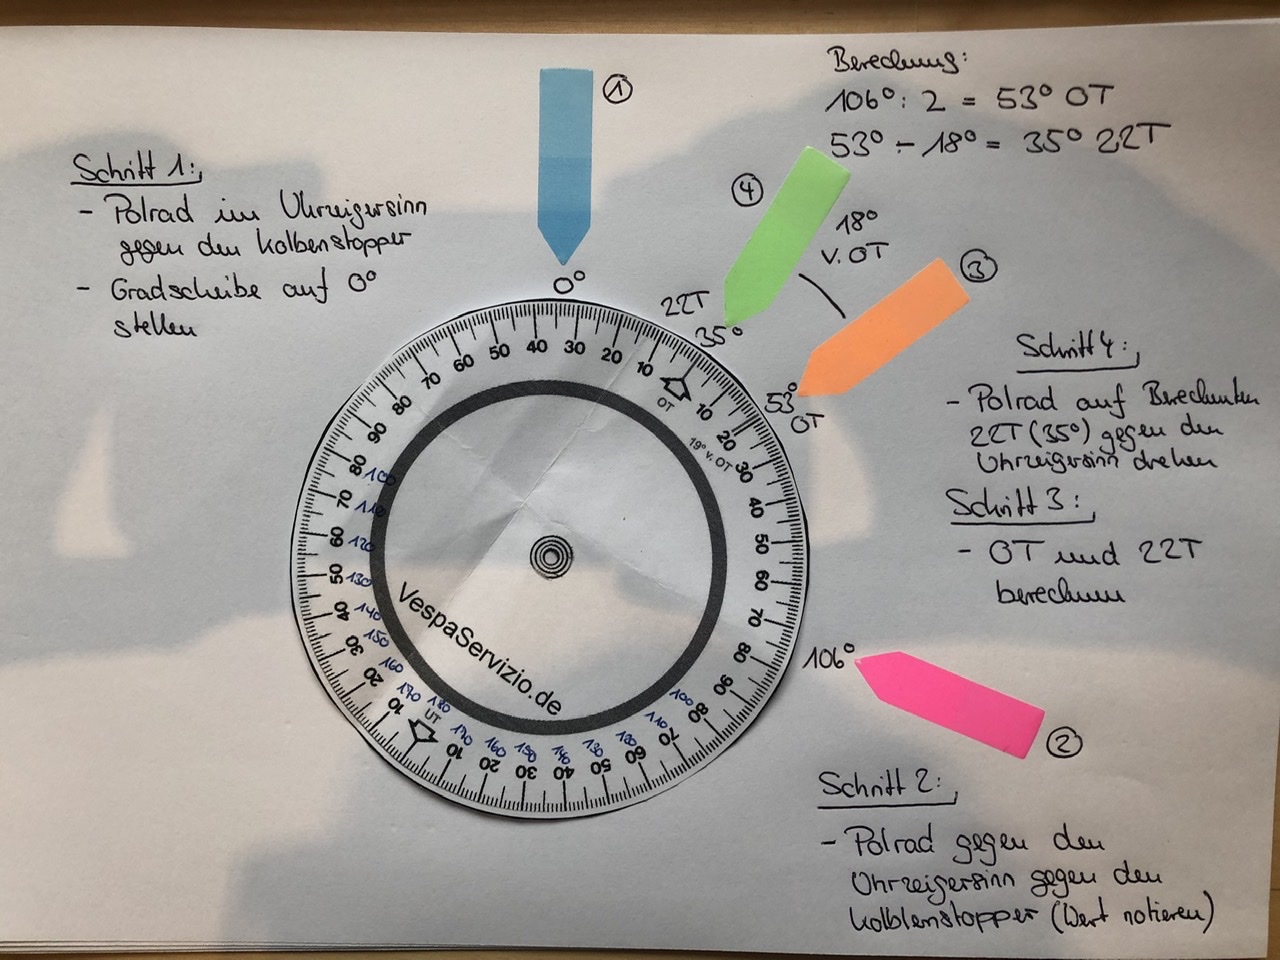 Berechnung:
106° : 2 = 53° OT
53° - 18° = 35° 22T
①
Schritt 1:
- Polrad im Uhrzeigersinn
gegen den Kolbenstopper
- Gradscheibe auf 0°
stellen
④
18°
v. OT
③
0°
22T
35°
53°
OT
Schritt 4:
- Polrad auf Berechneten
22T (35°) gegen den
Uhrzeigersinn drehen
Schritt 3:
- OT und 22T
berechnen
106°
②
Schritt 2:
- Polrad gegen den
Uhrzeigersinn gegen den
Kolblenstopper (Wert notieren)
90 80 70 60 50 40 30 20 10
OT
10 20 30 40 50 60 70 80 90
19° v. OT
80 70 60 50 40 30 20 10
UT
10 20 30 40 50 60 70 80
100 110 120 130 140 150 160 170 180
170 160 150 140 130 120 110 100
VespaServizio.de